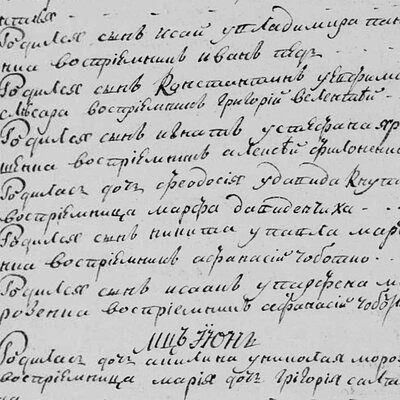 Родился сынъ исай у владимира пан
нка воспрiемникъ иванъ
Родился сынъ Констаптинъ у ефрима
слѣсара воспрiемникъ григорiй велентѣй
Родился сынъ игнатъ у стефана
шенка воспрiемникъ алексѣй филоненк
Родилась дочъ феодосiя у давида Кнута
воспрiемница марфа давиденчиха
Родился сынъ никита у павла мар
нка воспрiемникъ афанасiй чоботко
Родился сынъ исаакъ у парфена мо
розенка воспрiемникъ афанасiй чобот
мцъ Iюнъ
Родилась дочъ акилина у николая моро
воспрiемница марiя дочъ григорiя салта